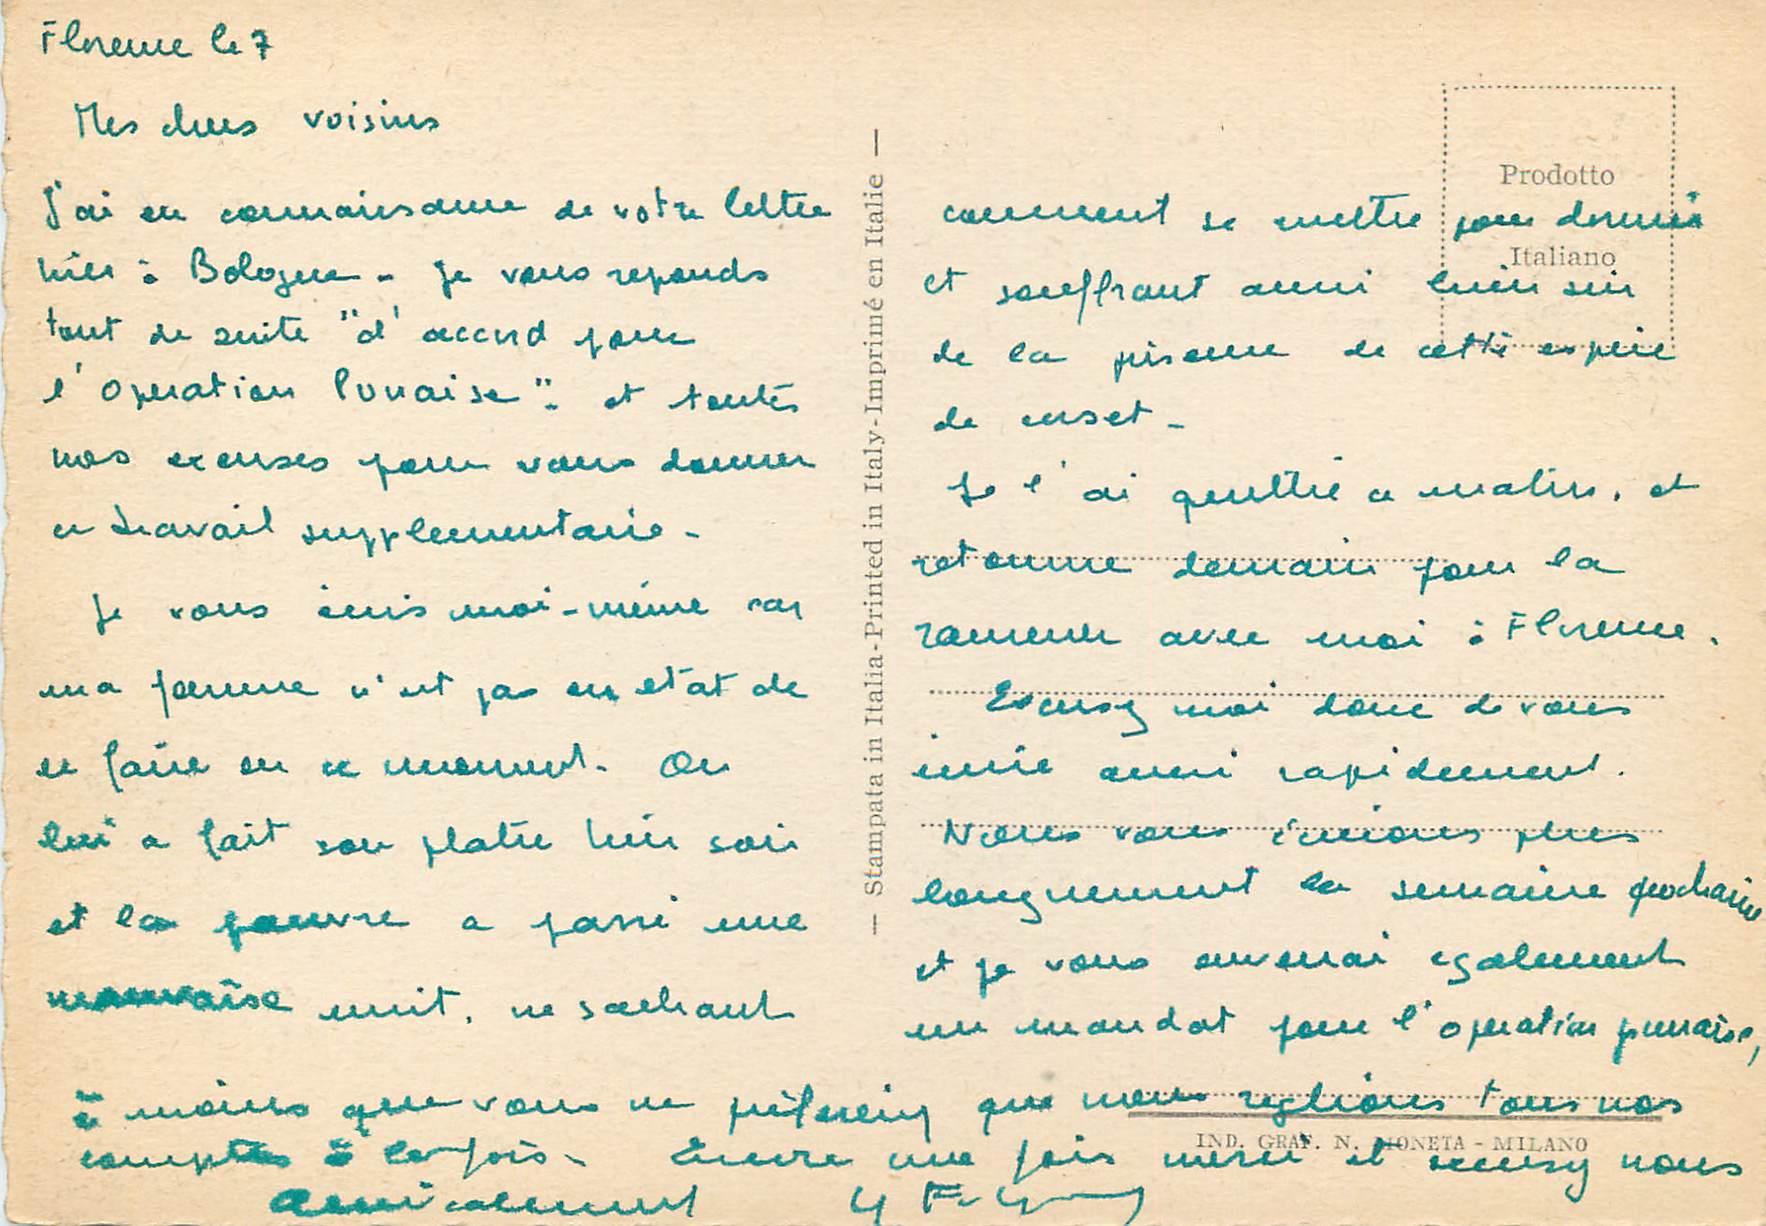 Florence le 7
Mes chers voisins
J'ai eu connaissance de votre lettre
hier à Bologne - Je vous reponds
tout de suite "d'accord pour
l'operation Punaise". et toutes
nos excuses pour vous donner
ce travail supplementaire -
Je vous écris moi-même car
ma femme n'est pas en etat de
le faire en ce moment. On
lui a fait son platre hier soir
et la pauvre a passé une
mauvaise nuit, ne sachant
comment se mettre pour dormir
et souffrant aussi bien sûr
de la presence de cette espece
de corset -
Je l'ai quittée ce matin, et
retourne demain pour la
ramener avec moi à Florence.
Excusez moi donc de vous
écrire aussi rapidement.
Nous vous écrirons plus
longuement la semaine prochaine
et je vous enverrai egalement
un mandat pour l'operation punaise,
à moins que vous ne préfereriez que nous reglions tous nos
comptes à la fois - Encore une fois merci et excusez nous
amicalement
— Stampata in Italia-Printed in Italy-Imprimé en Italie —
Prodotto
Italiano
IND. GRAF. N. MONETA - MILANO